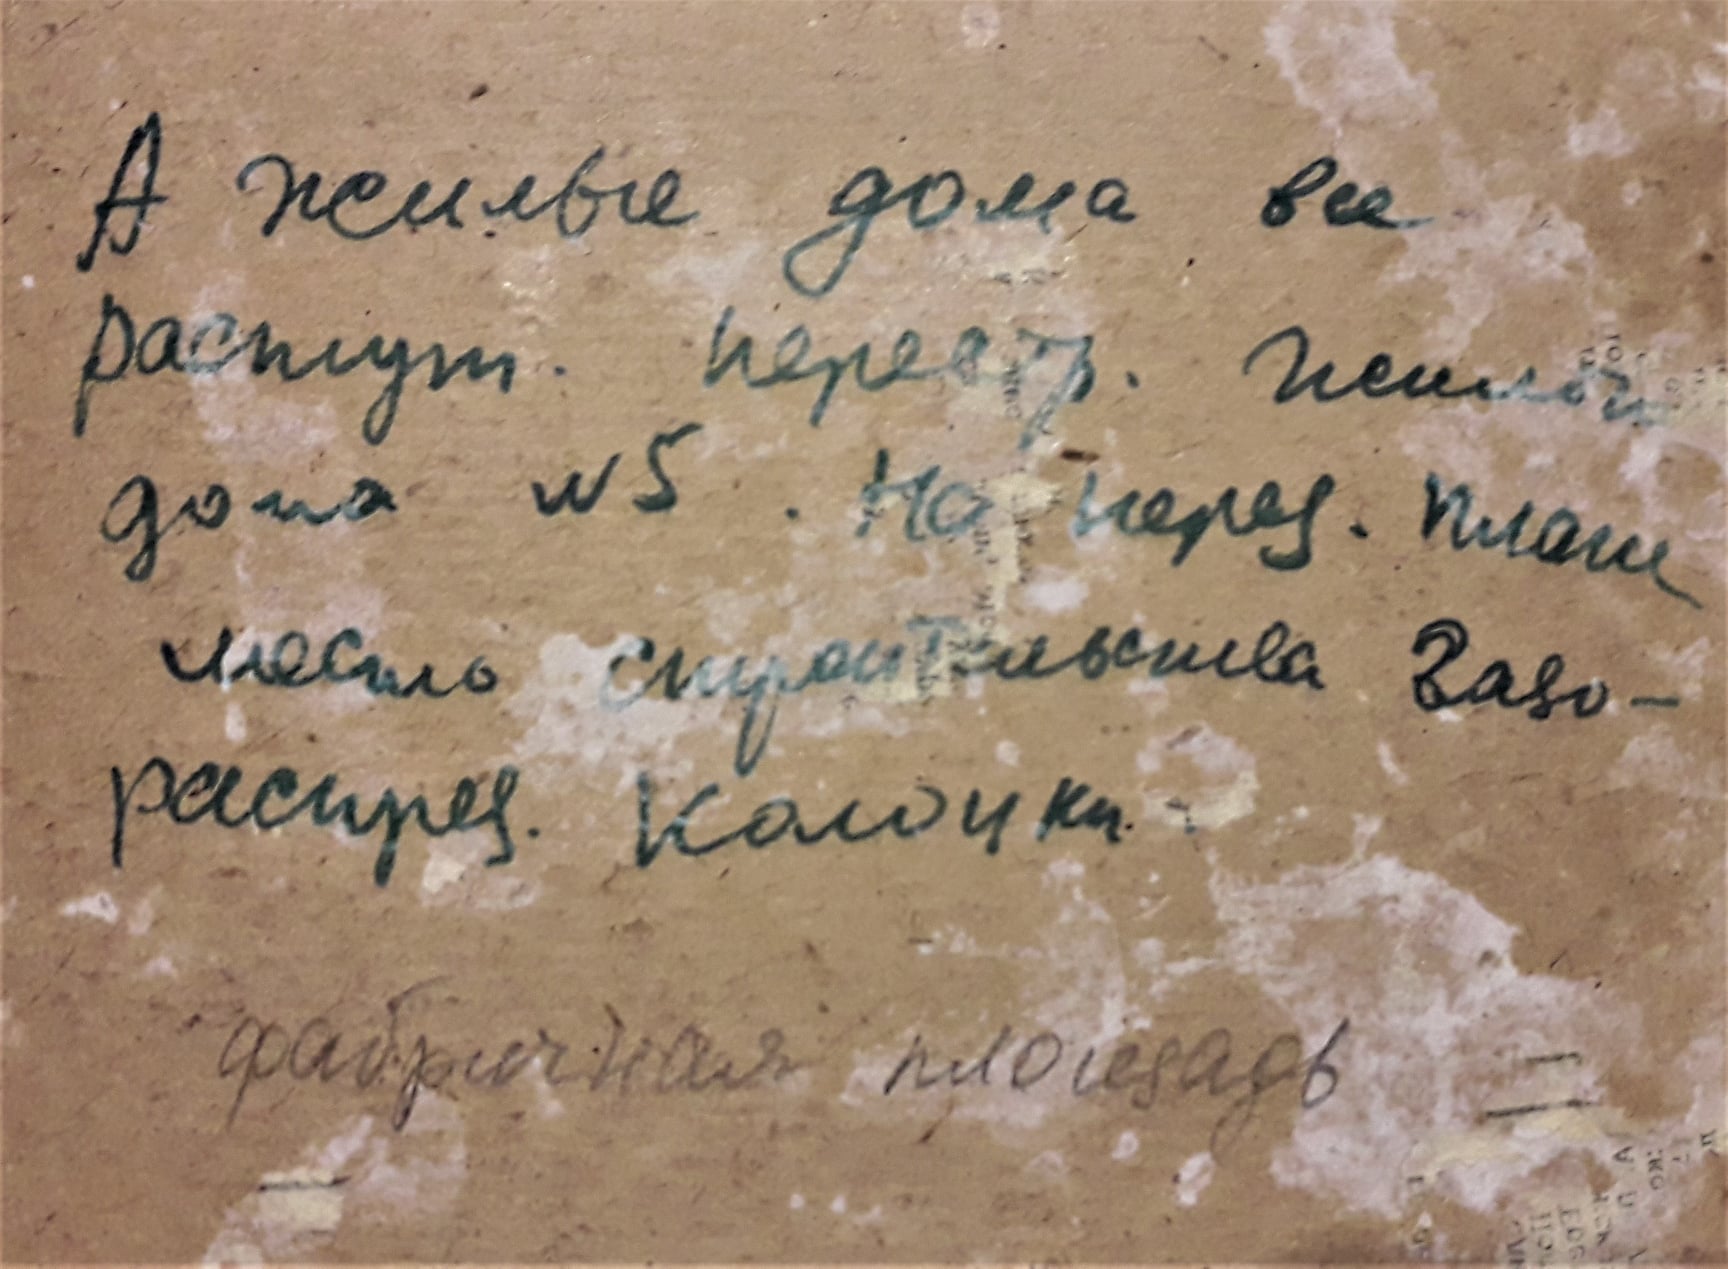 А жилые дома все
растут. перестр. жилой
дома №5. На перед. плане
место строительства Газо-
распред. Колонки.
фабричная площадь